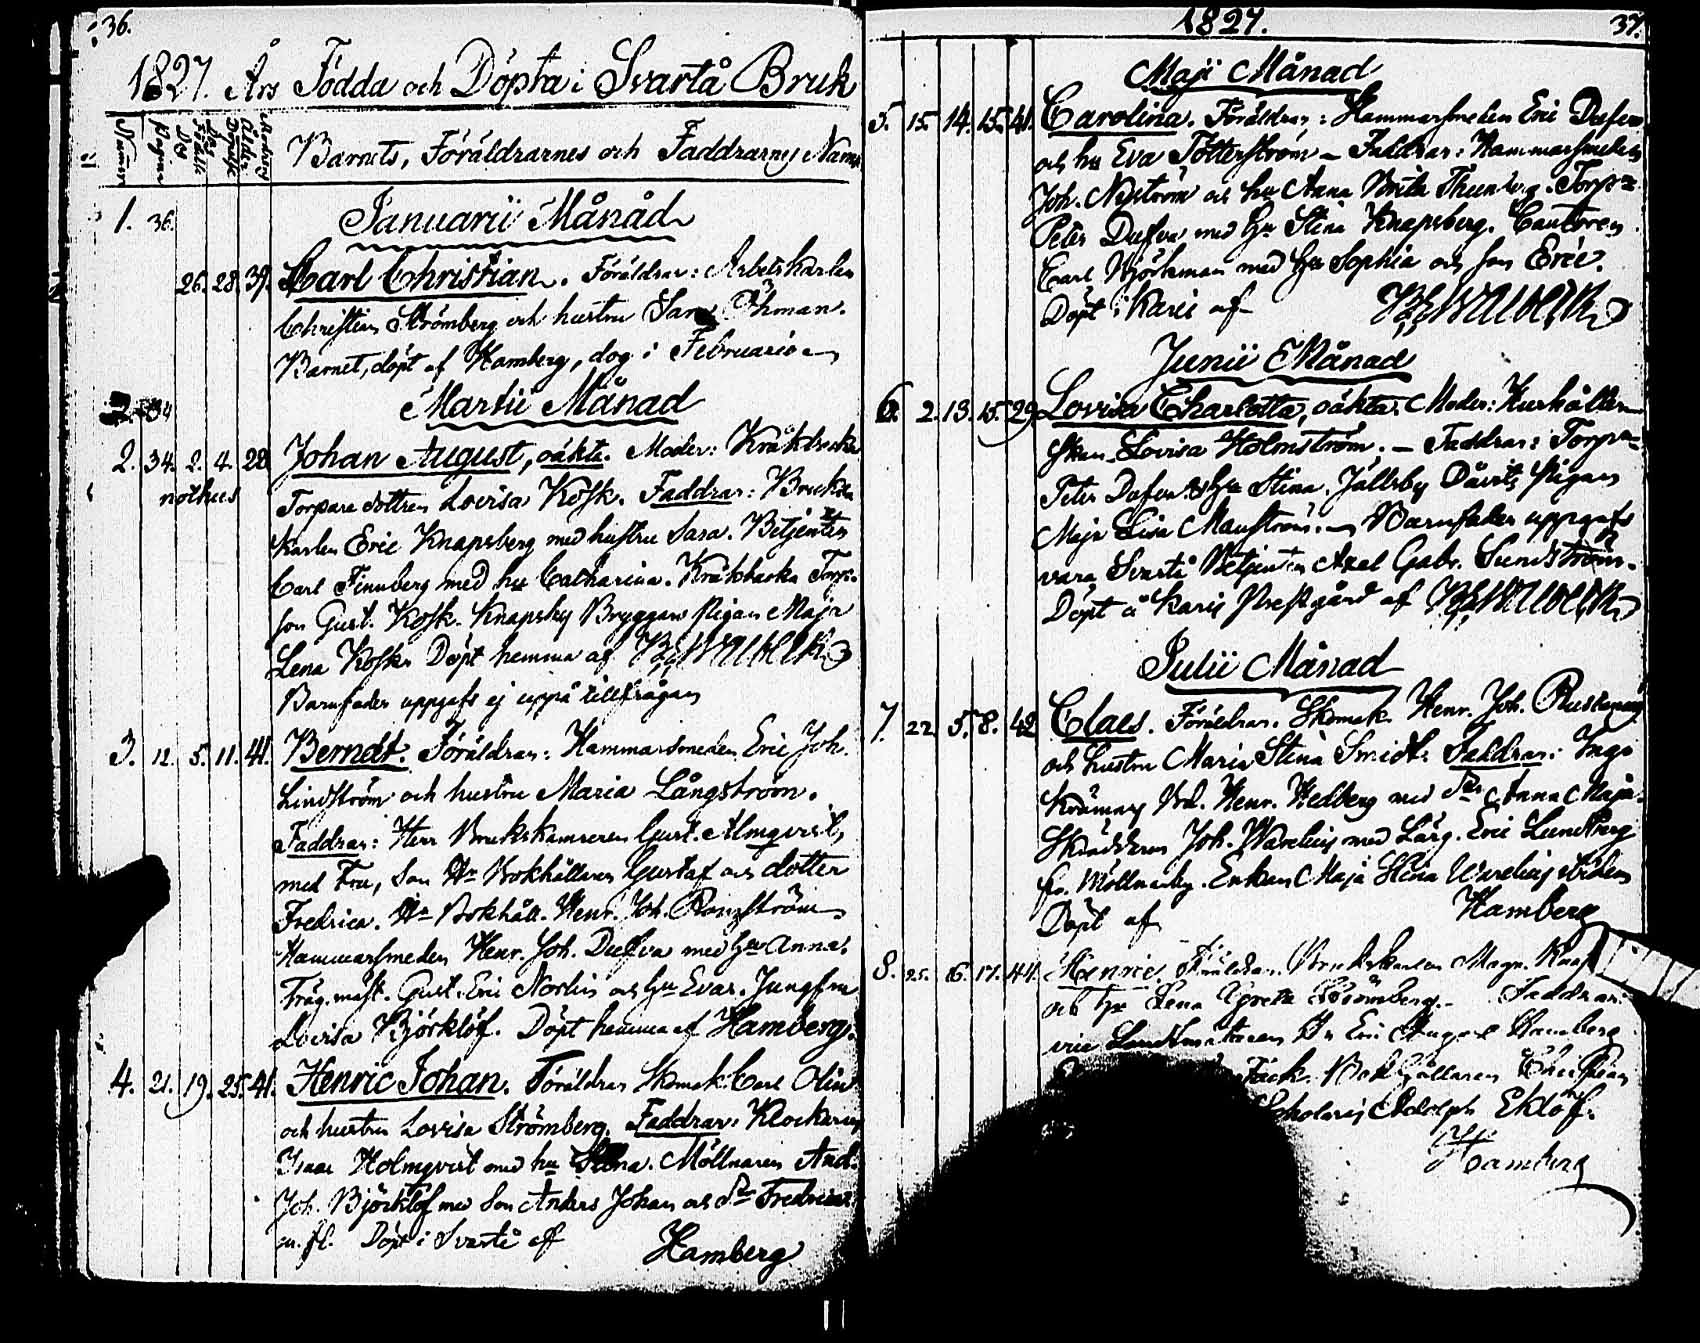 36.
1827. Års Födda och Döpta i Svartå Bruk
Barnets, Föräldrarnes och Faddrarnes Namn
Januarii Månad
1. 36.
26. 28. 39. Carl Christian. Föräldrar: Arbetskarlen
Christian Strömberg och hustru Sara Öhman.
Barnet, döpt af Hamberg, dog i Februario
Martii Månad
2. 34. 2. 4. 28. Johan August, oäkta. Moder: Kråkbacka
nothus
Torpare dottren Lovisa Kosk. Faddrar: Bruks
karlen Eric Knapsberg med hustru Sara. Betjenten
Carl Finnberg med hu Catharina. Kråkbacka Torp.
son Gust. Kosk. Knapsby Bryggars Pigan Maja
Lena Kosk. Döpt hemma af
Barnfader uppgafs ej uppå tillfrågan
3. 12. 5. 11. 41. Berndt. Föräldrar: Hammarsmeden Eric Joh.
Lindström och hustru Maria Långström.
Faddrar: Herr Brukskamreren Gust. Almqvist,
med Fru, Son Hr Bokhållaren Gustaf och dotter
Fredrica. Hr Bokhåll. Henr. Joh.
Hammarsmeden Henr. Joh. Dufva med hu Anna.
Träg.mäst. Gust. Eric Norlin och hu Eva. Jungfru
Lovisa Björklöf. Döpt hemma af Hamberg.
4. 21. 19. 25. 41. Henric Johan. Föräldrar Skomak. Carl Olin
och hustru Lovisa Strömberg. Faddrar: Klockaren
Isaac Holmqvist med hu Stina. Möllnaren And.
Joh. Björklöf med Son Anders Johan och Dr Fredrica
m. fl. Döpt i Svartå af Hamberg
1827. 37.
Maji Månad
5. 15. 14. 15. 41. Carolina. Föräldrar: Hammarsmeden Eric Dufva
och hu Eva Tötterström – Faddrar: Hammarsmeden
Joh. Nyström och hu Anna Brita Thunberg. Torp.
Peter Dufva med hu Stina Knapsberg. Cantoren
Carl Björkman med hu Sophia och son Eric.
Döpt i Karis af
Junii Månad
6. 2. 13. 15. 29. Lovisa Charlotta, oäkta. Moder: Hushåller
skan Lovisa Holmström. – Faddrar: Torp.
Peter Dufva och hu Stina. Jällsby Davits Pigan
Maja Lisa Manström. – Barnfader uppgafs
vara Svartå Betjenten Axel Gabr. Sundström.
Döpt å Karis Prestgård af
Julii Månad
7. 22. 5. 8. 42. Claes. Föräldrar. Skomak. Henr. Joh.
och hustru Maria Stina Smidt. Faddrar: Ingo
Krämars Bd. Henr. Hedberg med Dr Anna Maja.
Skräddaren Joh. Warelius med Lärg. Eric Lundberg
fr. Möllnarby. Enkan Maja Stina Warelius
Döpt af Hamberg
8. 25. 16. 17. 41. Henric. Föräldrar. Brukskarlen Magn.
och hu Lena Greta Strömberg. – Faddrar:
vice Landtmätaren Hr Eric August Hamberg
Bokhållaren Christian
Adolph Eklöf.
Hamberg